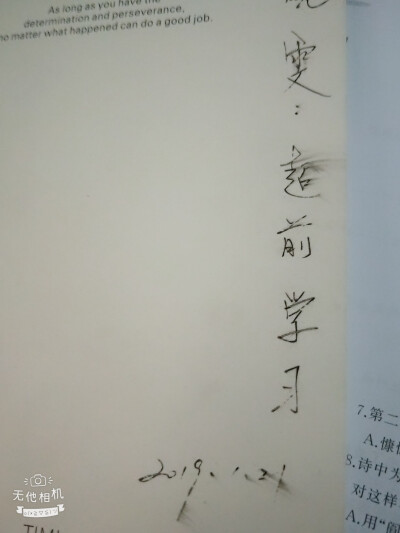 As long as you have the
determination and perseverance,
no matter what happened can do a good job.
雯：超前学习
2019.1.21
7.第二
A.慷
8.诗中为
对这样
A.用“
无他相机
TIM